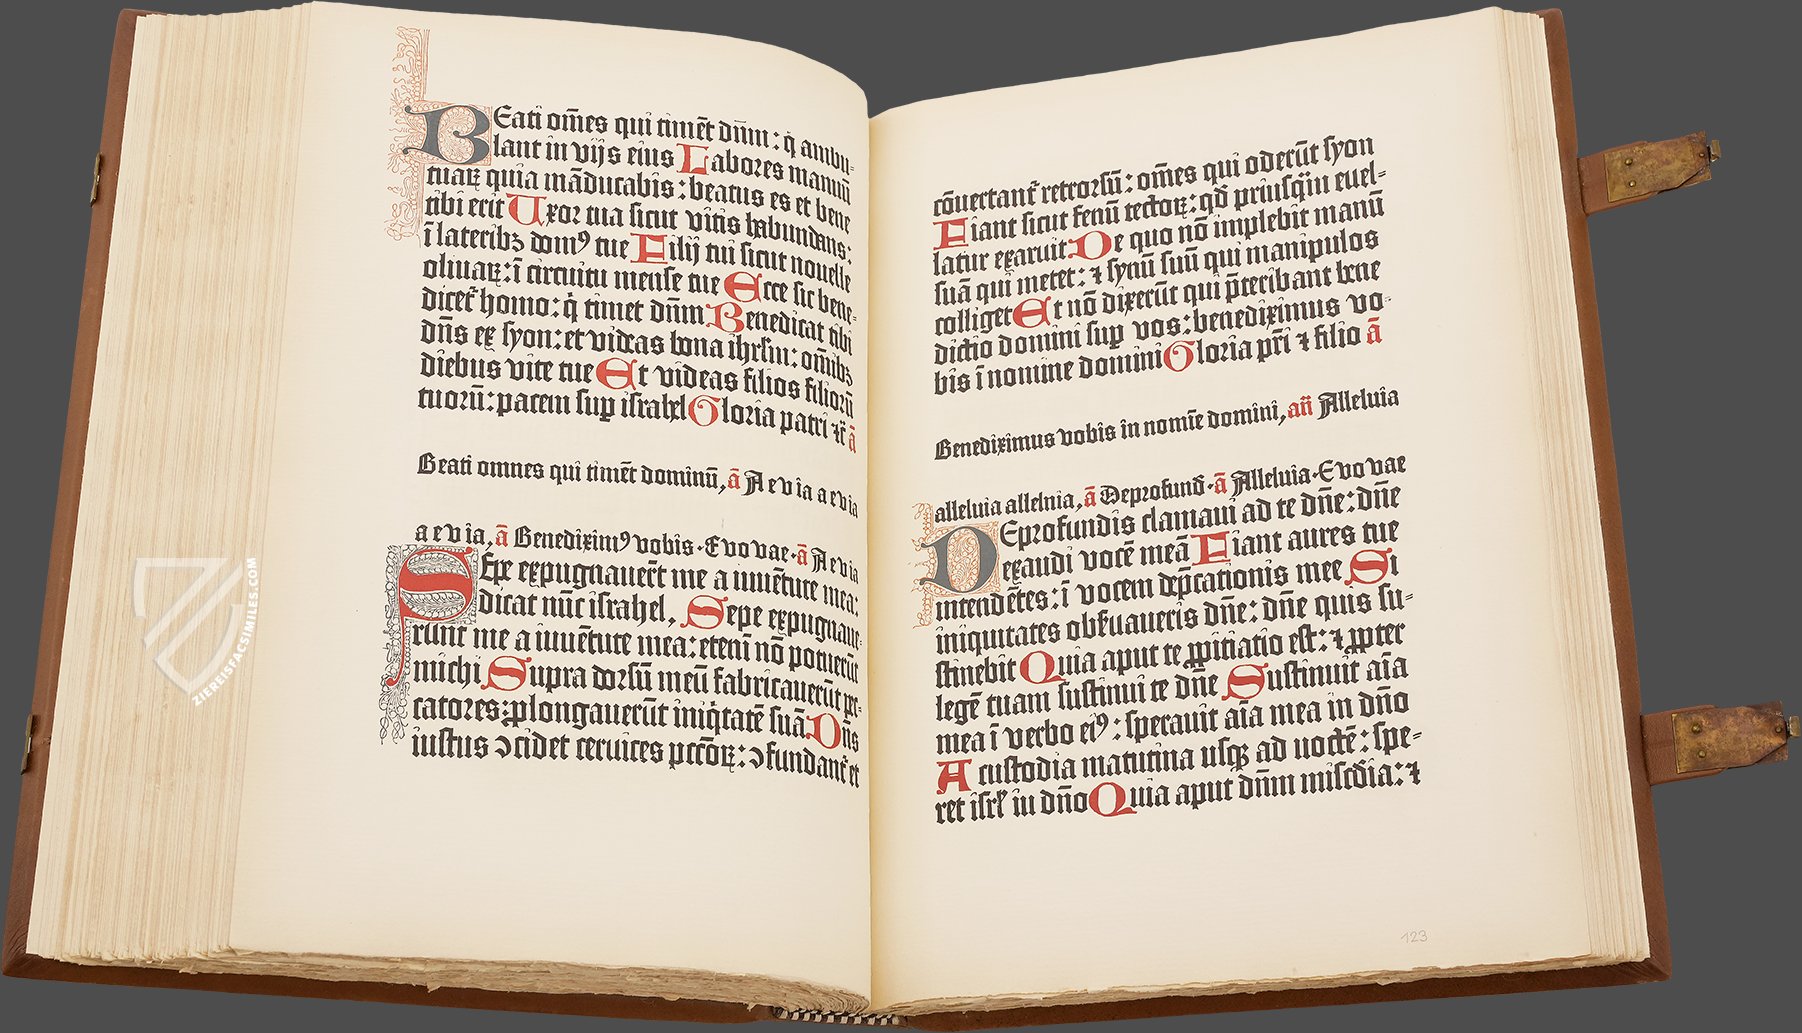 BEati om̄es qui timēt dn̄m : q̇ ambu-
lant in vijs eius Labores manuū
tuaꝝ quia māducabis : beatus es et bene
tibi erit Uxor tua sicut vitis habundans :
ī lateribꝫ domꝰ tue Filij tui sicut nouelle
oliuaꝝ : ī circuitu mense tue Ecce sic bene-
dicet᷑ homo : q̇ timet dn̄m Benedicat tibi
dn̄s ex syon : et videas bona ihrl̄m : om̄ibꝫ
diebus vite tue Et videas filios filiorū
tuorū : pacem suꝑ israhel Gloria patri ⁊c̄ ā
Beati omnes qui timēt dominū, ā A e v ia a e v ia
a e v ia, ā Benediximꝰ vobis · Evovae · ā A e v ia
SEpe expugnauerūt me a iuuētute mea :
dicat nūc israhel, Sepe expugnaue-
runt me a iuuētute mea : eteni nō potuerūt
michi Supra dorsū meū fabricauerūt pec-
catores : ꝓlongauerūt iniq̇tatē suā Dn̄s
iustus ↄcidet ceruices pcc̄oꝝ : ↄfundant᷑ et
cōuertant᷑ retrorsū : om̄es qui oderūt syon
Fiant sicut fenū tectoꝝ : qd̄ priusq̄ꝫ euel-
latur exaruit De quo nō implebit manū
suā qui metet : ⁊ synū suū qui manipulos
colliget Et nō dixerūt qui p̄teribant bene
dictio domini suꝑ vos : benediximus vo-
bis ī nomine domini Gloria pr̄i ⁊ filio ā
Benediximus vobis in nomīe domini, an̄ Alleluia
alleluia alleluia, ā Deprofund̄ · ā Alleluia · Evovae
DEprofundis clamaui ad te dn̄e : dn̄e
exaudi vocē meā Fiant aures tue
intendētes : ī vocem dep̄cationis mee Si
iniquitates obẜuaueris dn̄e : dn̄e quis su-
stinebit Quia aput te ꝓpitiatio est : ⁊ ꝓpter
legē tuam sustinui te dn̄e Sustinuit aīa
mea ī verbo eiꝰ : sperauit aīa mea in dn̄o
A custodia matutina usqꝫ ad noctē : spe-
ret isrl̄ in dn̄o Quia aput dn̄m misc̄dia : ⁊
123
ZIEREISFACSIMILES.COM